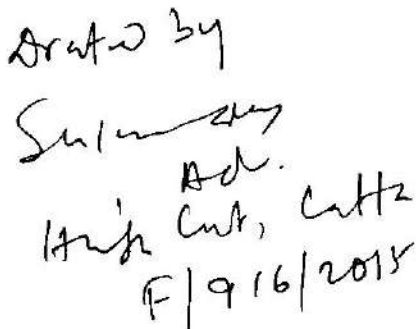 Drafted by
Ad.
High Court, Calcutta
F/916/2015